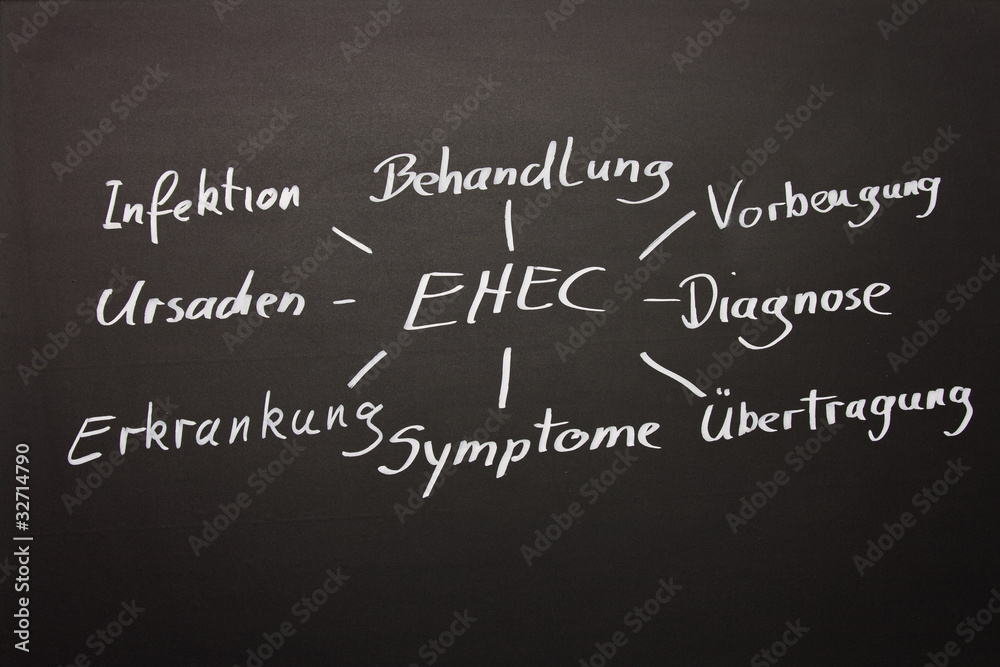 Behandlung
Infektion
Vorbeugung
Ursachen - EHEC - Diagnose
Erkrankung
Symptome
Übertragung
Adobe Stock | #32714790
Adobe Stock